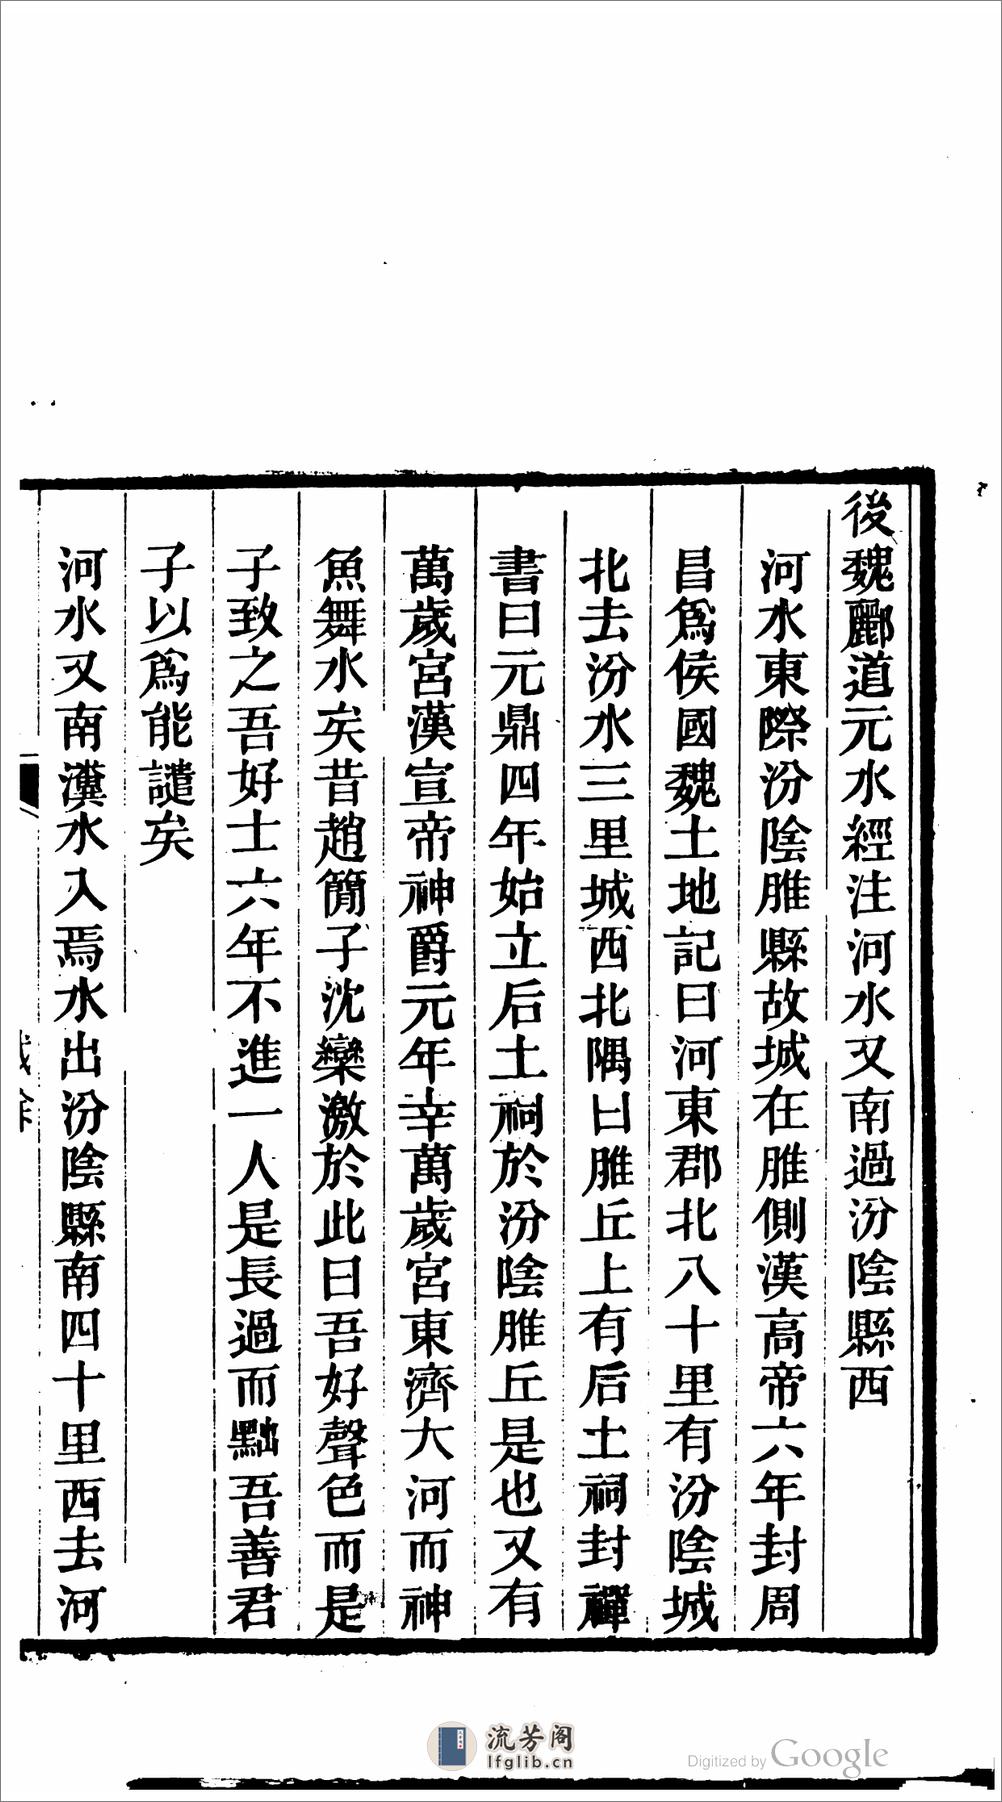 後魏酈道元水經注河水又南過汾陰縣西
河水東際汾陰脽縣故城在脽側漢高帝六年封周
昌爲侯國魏土地記曰河東郡北八十里有汾陰城
北去汾水三里城西北隅曰脽丘上有后土祠封禪
書曰元鼎四年始立后土祠於汾陰脽丘是也又有
萬歲宮漢宣帝神爵元年幸萬歲宮東濟大河而神
魚舞水矣昔趙簡子沈欒激於此曰吾好聲色而是
子致之吾好士六年不進一人是長過而黜吾善君
子以爲能譴矣
河水又南瀵水入焉水出汾陰縣南四十里西去河
流芳阁
lfglib.cn
Digitized by Google